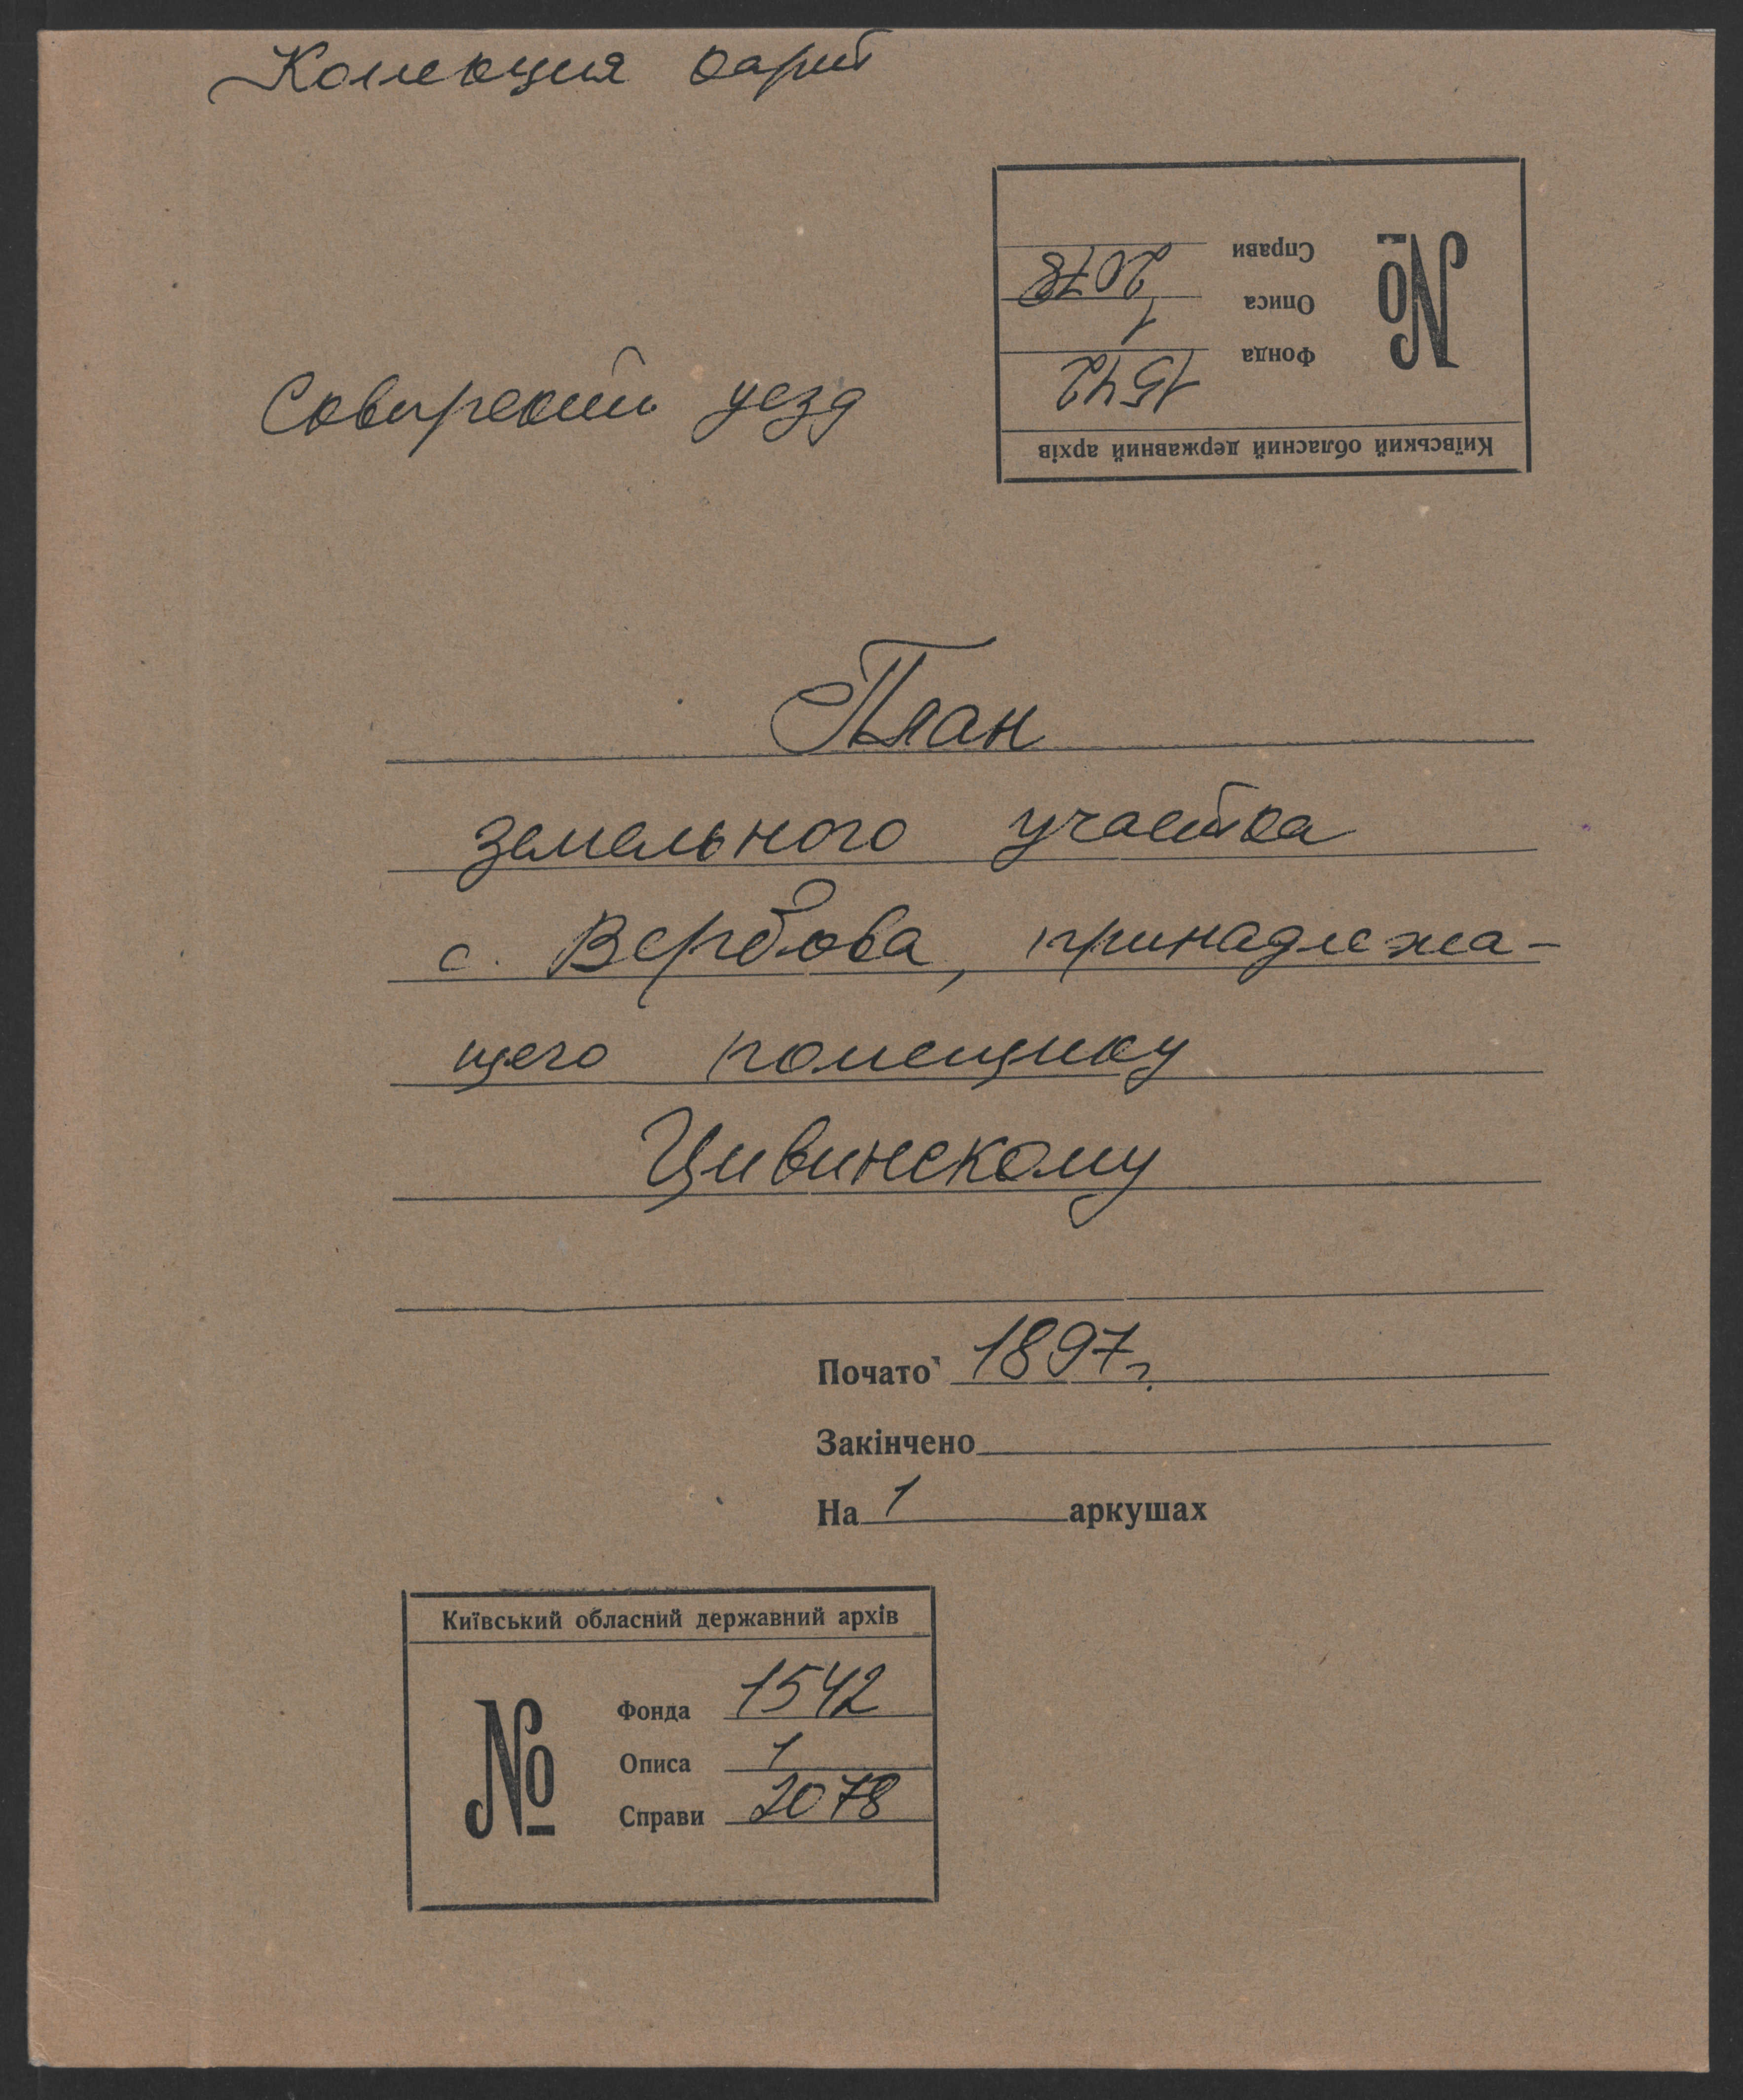 Коллекция карт
Київський обласний державний архів
№
Фонда 1542
Описа 1
Справи 2078
Сквирский уезд
План
земельного участка
с. Вербова, принадлежа-
щего помещику
Цивинскому
Почато 1897 г.
Закінчено
На 1 аркушах
Київський обласний державний архів
№
Фонда 1542
Описа 1
Справи 2078